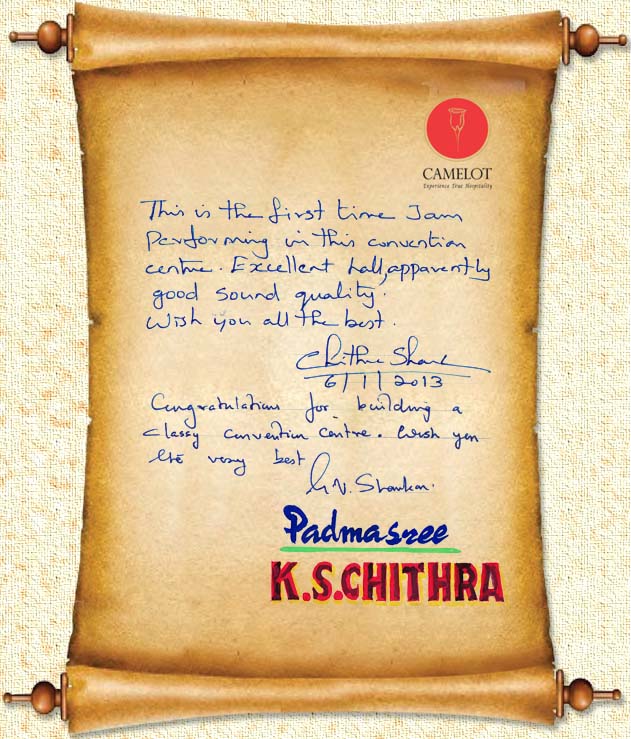 CAMELOT
Experience True Hospitality
This is the first time I am
Performing in this convention
centre. Excellent hall, apparently
good sound quality.
Wish you all the best.
Chithra Shank
6/1/2013
Congratulations for building a
classy convention centre. Wish you
the very best
Padmasree
K.S.CHITHRA